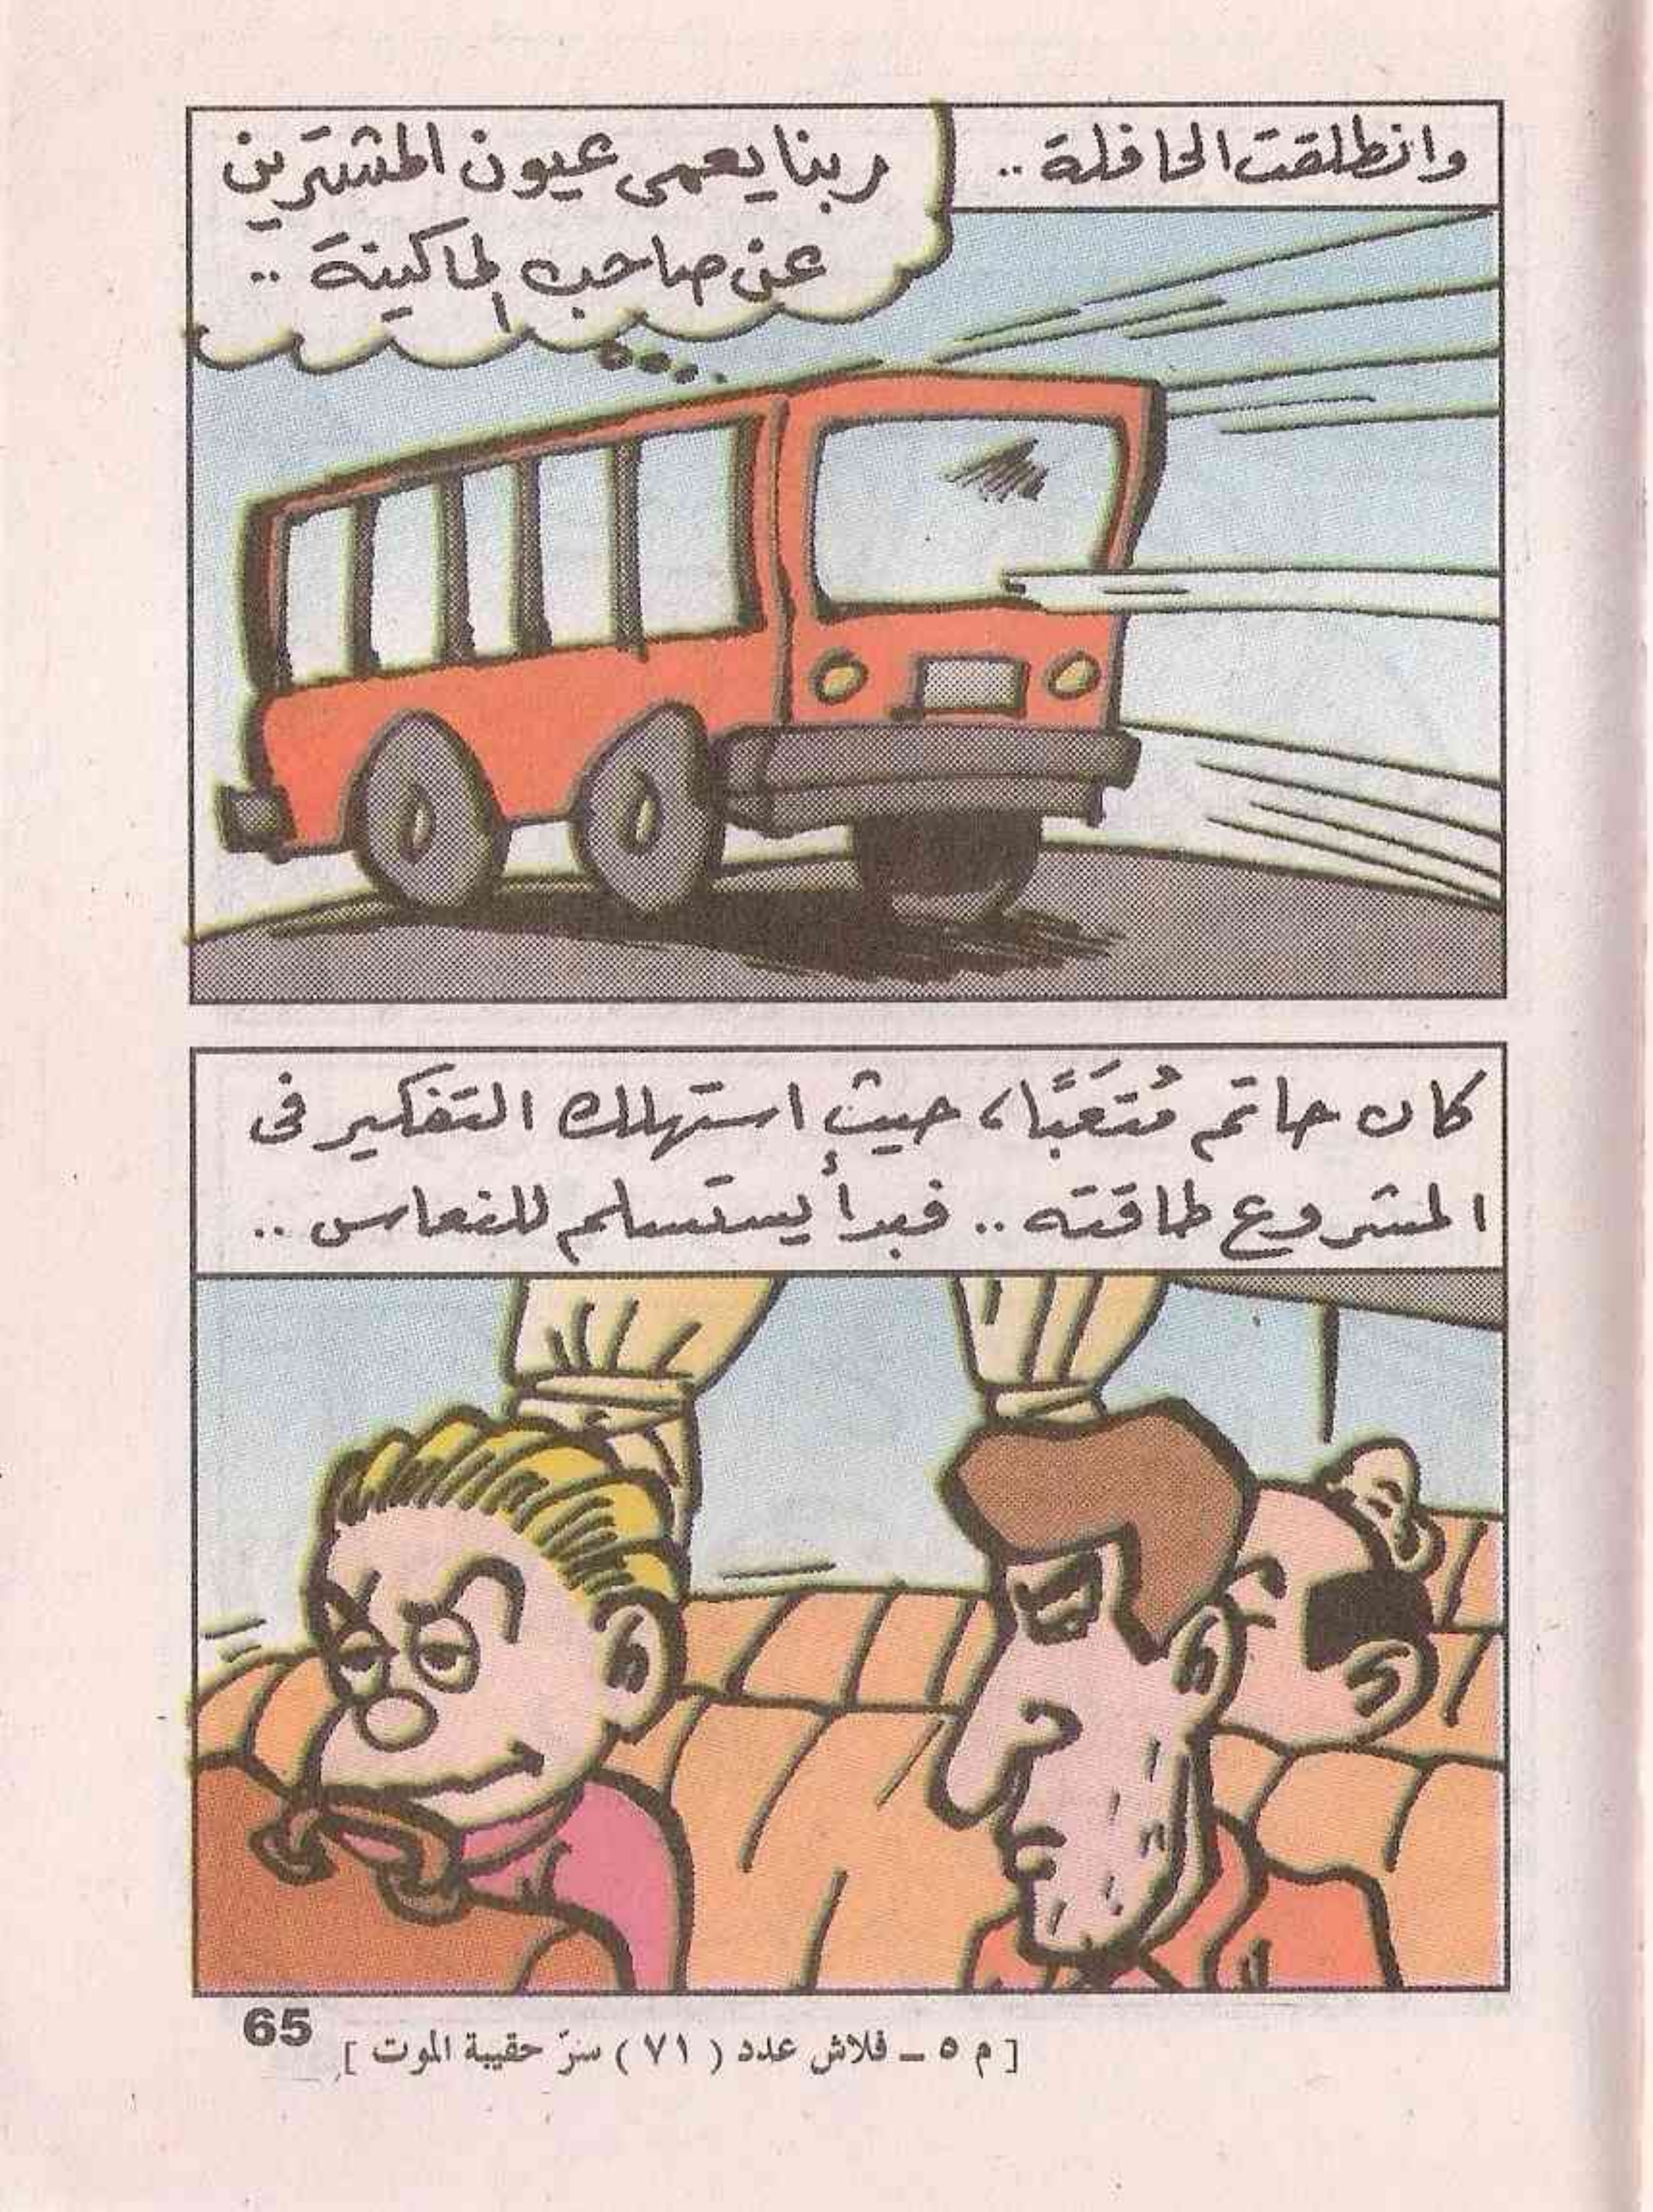 وانطلقت الحافلة ..
ربنا يعمى عيون المشترين
عن صاحب الماكينة ..
كان حاتم مُتعَبًا، حيث استهلك التفكير فى
المشروع طاقته .. فبدأ يستسلم للنعاس ..
65
[ م ٥ ــ فلاش عدد ( ٧١ ) سرّ حقيبة الموت ]